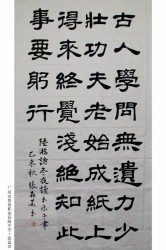 古人學問無遺力少
壯功夫老始成紙上
得來終覺淺絕知此
事要躬行
陸游詩冬夜讀書示子聿
乙未秋